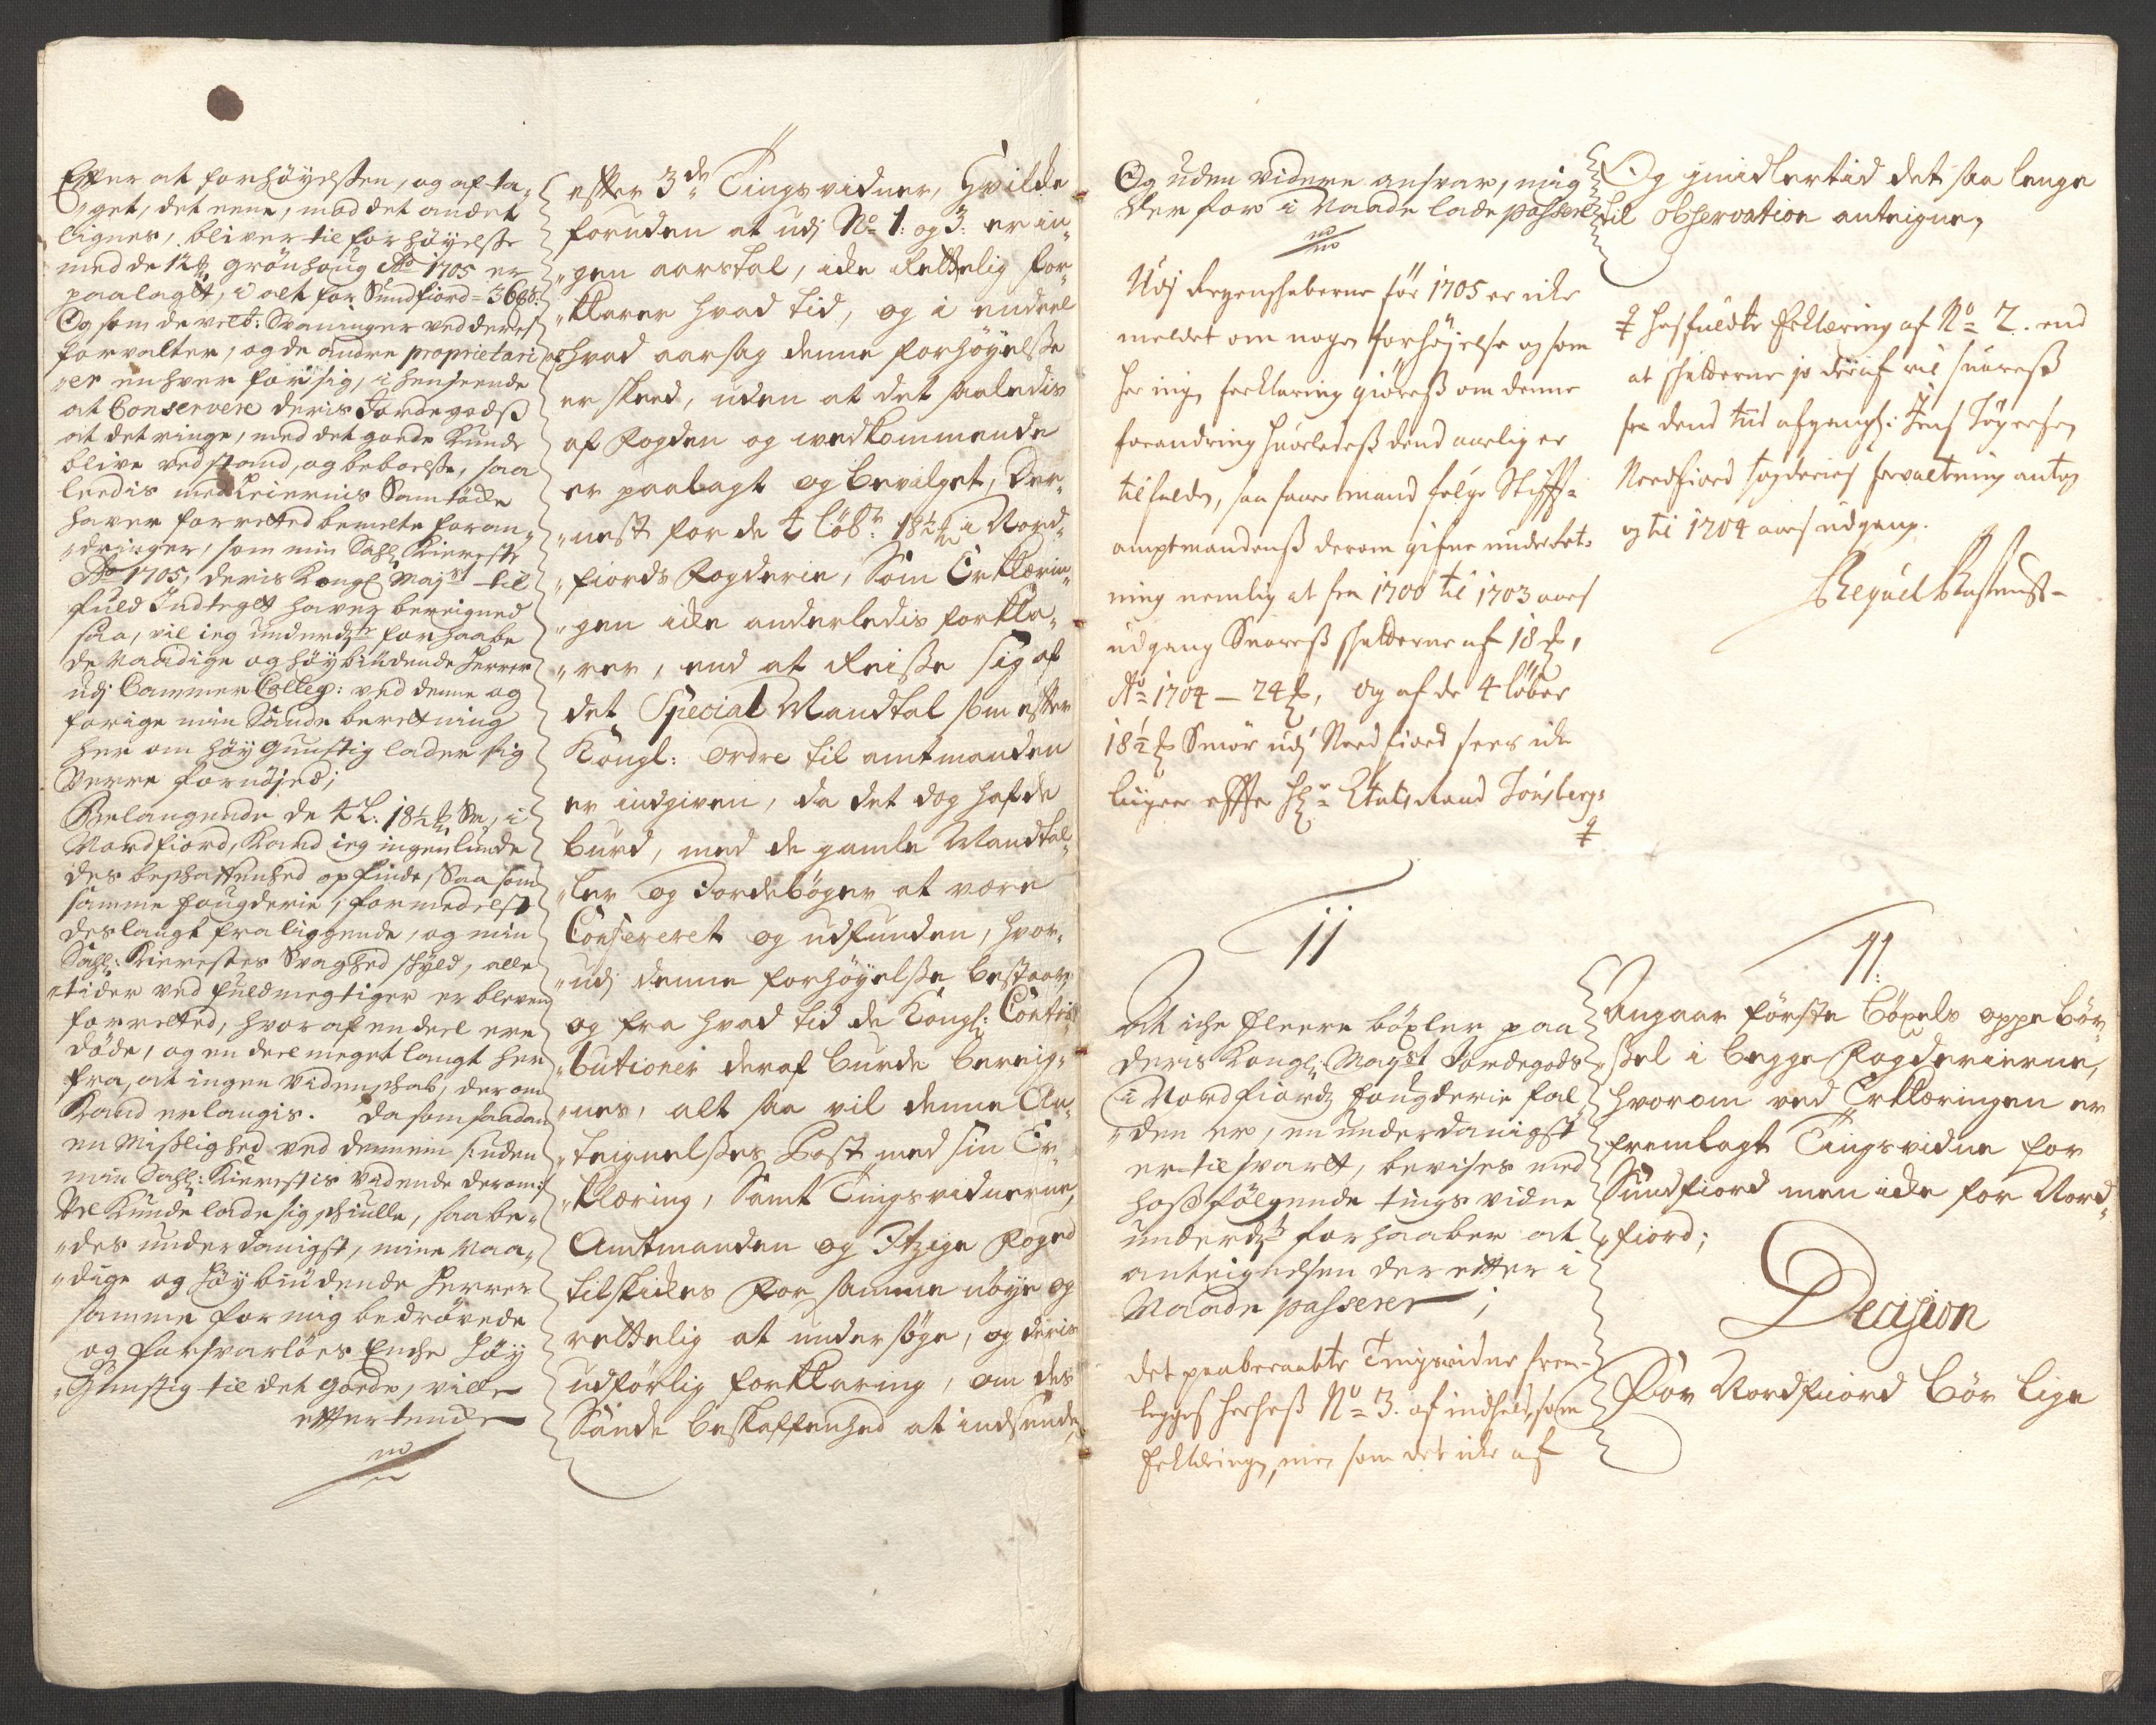 Efter at forhöyelssen, og afta-
get, det eene, mod det andet
lignes, bliver til forhöyelsse
med de 12 grönhoug Ao 1705 er
paalagt, i alt for Sundfiord = 36
Og som de velb: Svaninger ved deres
forvalter, og de andre proprietari
er en hver for sig, i henseende
at Conservere deris Jordegodss
at det ringe, med det goede kunde
blive ved stand, og beboelsse, saa
leedis med Leiernis Samtöcke
haver forretted bemelte foran-
dringer, som min Sahl Kiereste
Ao 1705, deris Kongl Majst til
fuld Indtegt haver bereigned
saa, vil ieg underdst forhaabe
de Naadige og höybiudende Herrer
udj Cammer Colleg: ved denne og
forige min Sande beretning
her om höygunstig lader sig
Verre fornöjed;
Belangende de 4 L. 18½ Sm, i
Nordfiord, kand ieg ingenlunde
des beschaffenhed opfinde, Saasom
samme fougderie, formedelst
des langt fraliggende, og min
Sahl: Kierestes Svaghed skyld, alle
tider ved fuldmegtiger er bleven
forretted, hvoraf endeel ere
döde, og en deel meget langt her
fra, at ingen Videnschab, derom
kand erlangis. Da som saadan
en Misslighed ved dennem /: uden
min Sahl: Kierestis vidende derom :/
Vel kunde lade sig schiulle, saa be-
des underdanigst, mine Naa-
dige og Höybiudende Herrer
samme for mig bedrövede
og forsvarlöes Encke Höy
Gunstig til det goede, ville
eftertencke
efter 3de Tingsvidner, Hvilcke
foruden at udj No 1: og 3: er in-
gen aarstal, icke Rettelig for-
klarer hvad tid, og i endeel
hvad aarsag denne forhöyelsse
er skeed, uden at det saaledis
af Fogden og wedkommende
er paalagt og bevilget, Der-
nest for de 4 Löb 18½ i Nord-
fiords Fogderie, Som Erklærin-
gen icke anderledis forkla-
rer, end at Reisse sig af
det Special Mandtal som efter
Kongl: ordre til amtmanden
er indgiven, da det dog hafde
burd, med de gamle Mandtal-
ler og Jordebøger at være
Confereret og udfunden, hvor-
udj denne forhöyelsse bestaar
og fra hvad tid de Kongl: Contri-
butioner deraf burde bereig-
nes, alt saa vil denne An-
teignelsses Post med sin Er-
klæring, Samt Tingsvidnerne,
Amtmanden og Itzige Foged
tilskickes for samme nöye og
rettelig at undersöge, og deris
udförlig forklaring, om des
Sande beskaffenhed at indsende,
Og uden videre ansvar, mig
derfor i Naade lade passere
Udj Regenskaberne för 1705 er icke
meldet om nogen forhöjelse og som
her ingen forklaring giöress om denne
forandring huorledess dend aarlig er
tilfalden, saa faar mand følge Stifft-
amptmandenss derom gifne underret-
ning nemlig at fra 1700 til 1703 aars
udgang Suaress skylderne af 18,
Ao 1704 – 24, og af de 4 löber
18½ Smör udj Nordfiord sees icke
liigere effter Hr Etats Raad Tönsbergs
Og imidlertid det saa lenge
til observation anteigne,
hosfuldte Erklæring af No 2. end
at skylderne jo deraf vil suaress
fra dend tiid afgangs: Jens Tögersen
Nordfiord fogderies forvaltning antog
og til 1704 aars udgang.
11
At icke fleere böxler paa
deris Kongl: Mayst Jordegods
i Nordfiords fougderie fal-
den er, en underdanigst
er tilsvart, bevises med
hossfölgende tings vidne
underdst forhaaber at
anteignelsen derefter i
Naade passerer;
det paaberaabte Tingsvidne frem-
legges herhoss No 3. af indhold, som
Erklæringen, men som det icke af
11:
Angaar förste Böxels oppebör-
sel i begge Fogderierne,
hvorom ved Erklæringen er
fremlagt Tingsvidne for
Sundfiord men icke for Nord-
fiord;
Decision
For Nordfiord bör lige